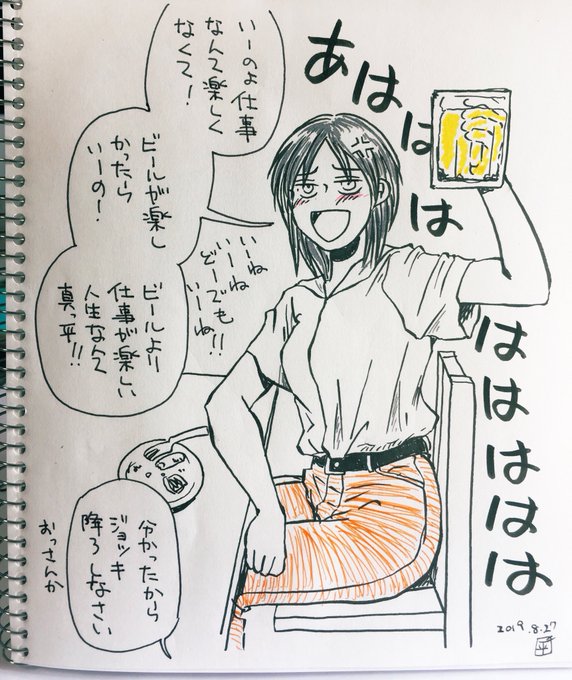 いーのよ仕事
なんて楽しく
なくて!
ビールが楽し
かったら
いーの!
いーね
いーね
どーでも
いーね!!
ビールより
仕事が楽しい
人生なんて
真っ平!!
あはははははははは
分かったから
ジョッキ
降ろしなさい
おっさんか
2019.8.27
平